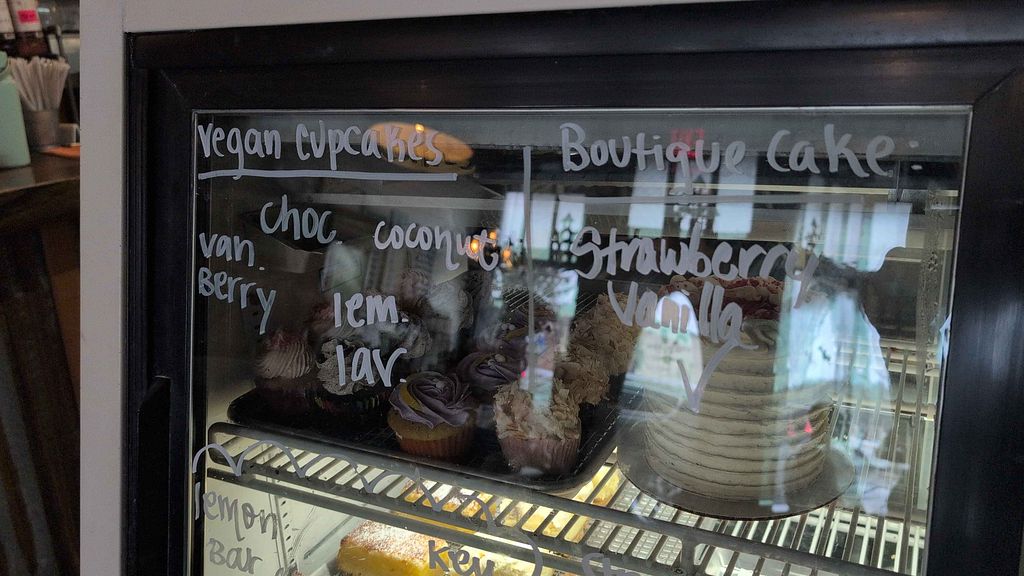 vegan cupcakes
choc. coconut
van. Berry
lem. lav.
Boutique Cake
Strawberry
Vanilla
lemon
Bar
Key